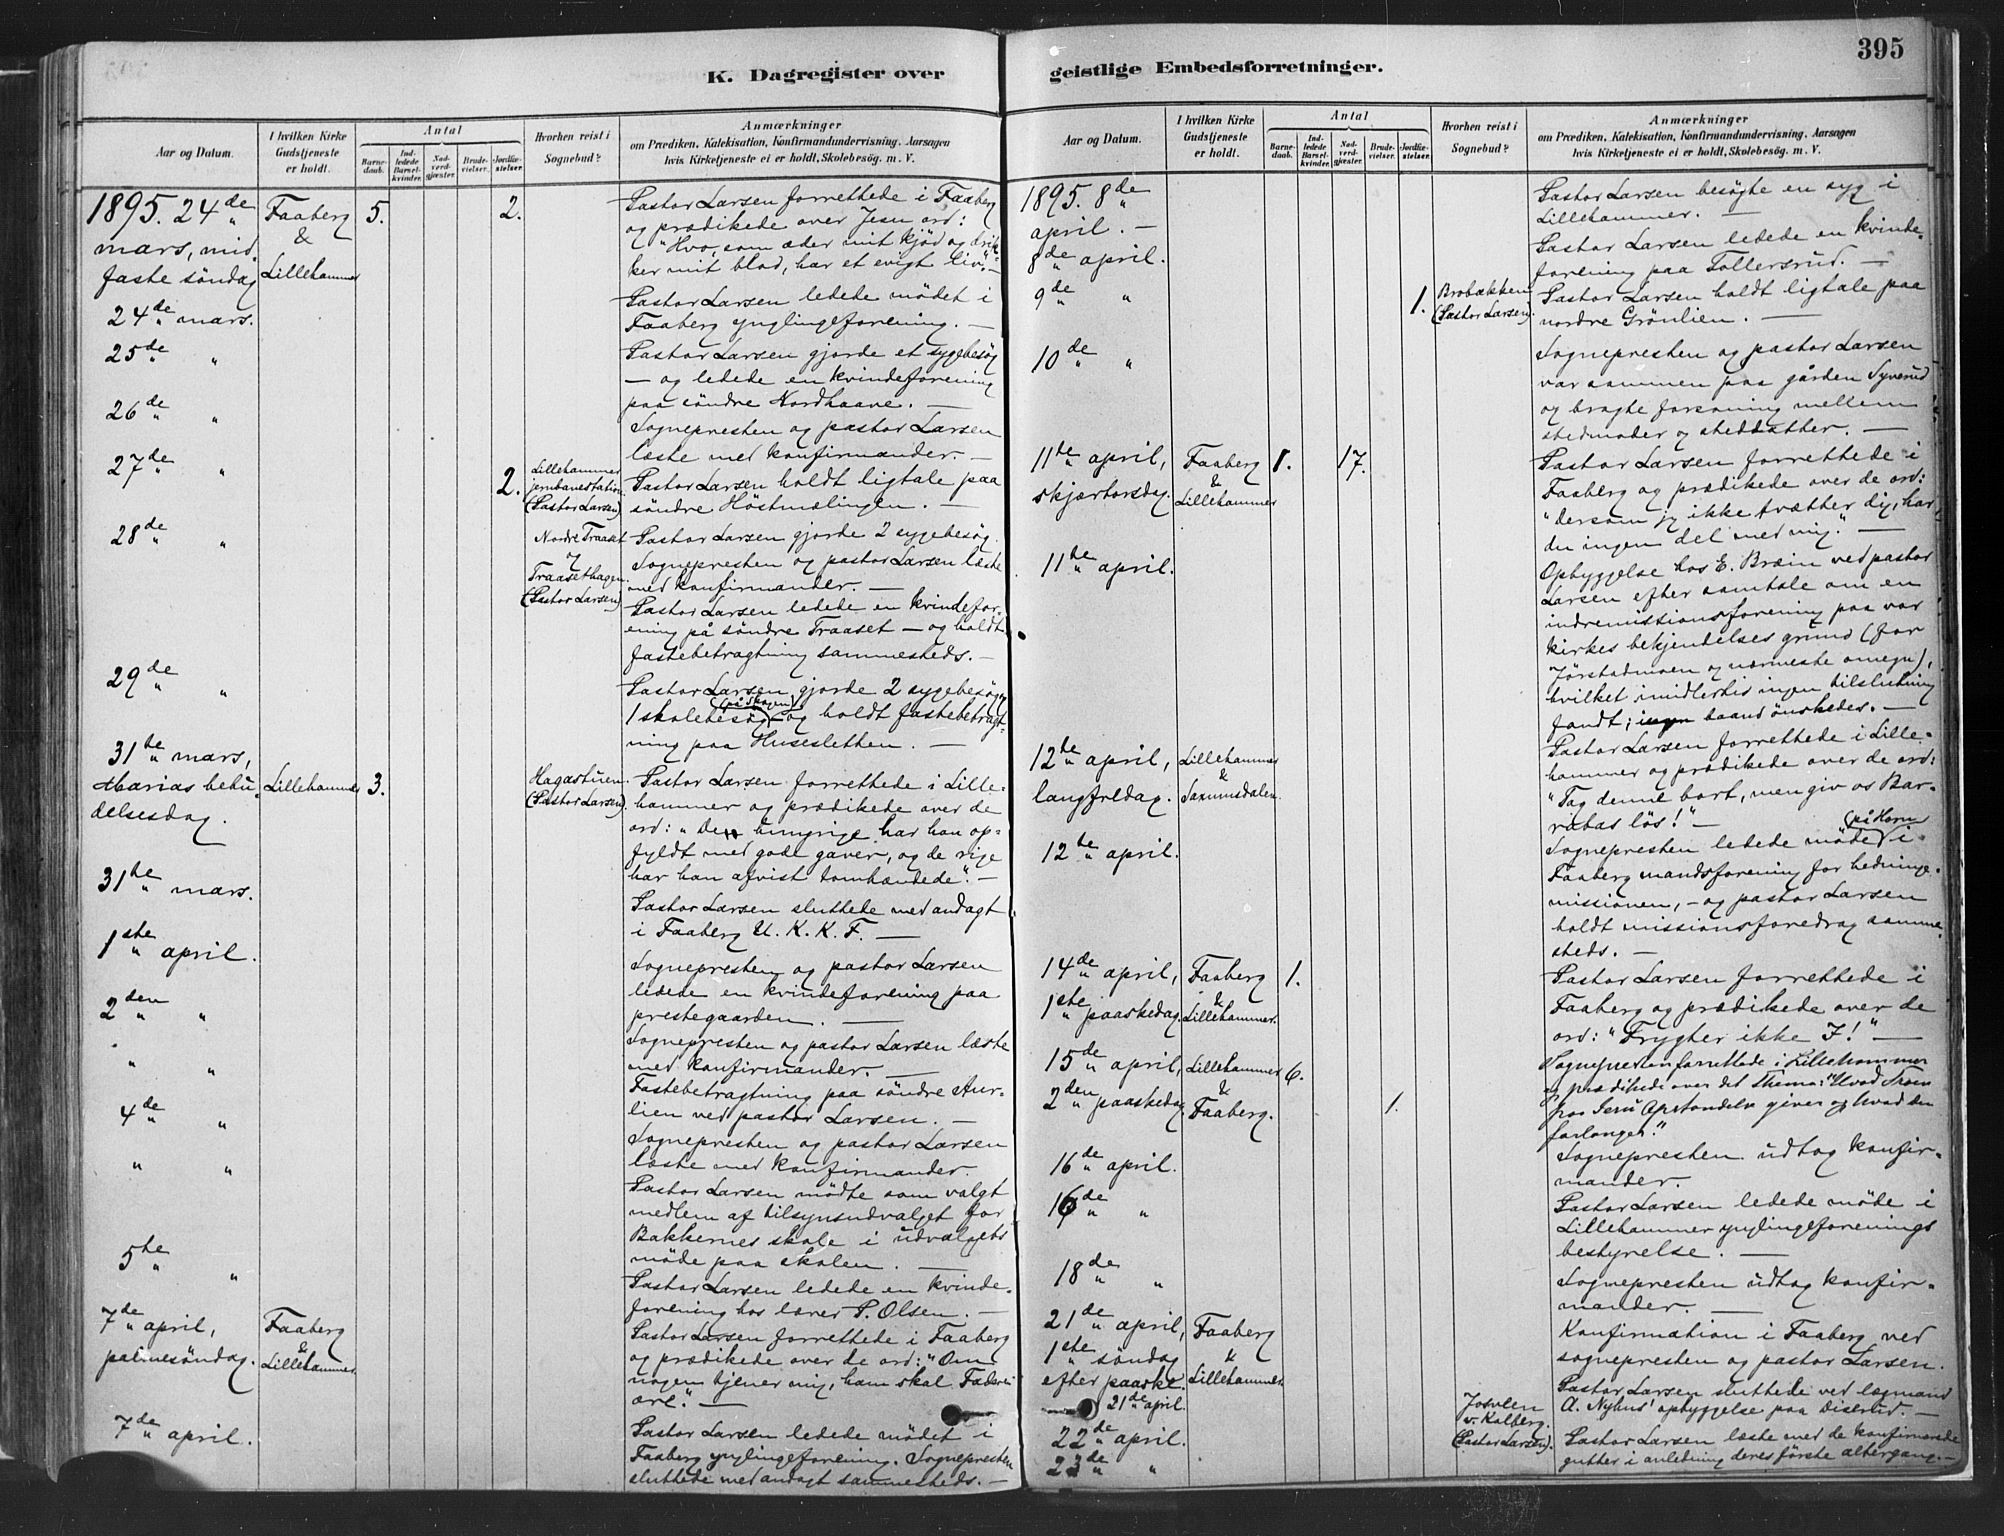 395
K. Dagregister over
geistlige Embedsforretninger.
Aar og Datum.
I hvilken Kirke Gudstjeneste er holdt.
Antal
Barnedaab.
Indledede Barselkvinder.
Nadverdgjæster.
Brudevielser.
Jordfæstelser.
Hvorhen reist i Sognebud?
Anmærkninger
om Prædiken, Katekisation, Konfirmandundervisning, Aarsagen
hvis Kirketjeneste ei er holdt, Skolebesøg. m. V.
1895. 24de
mars, mid-
faste söndag
Faaberg
&
Lillehammer
5.
2.
Pastor Larsen forrettede i Faaberg
og prædikede over Jesu ord:
"Hvo, som æder mit kjöd og drik-
ker mit blod, har et evigt liv". —
24de mars.
Pastor Larsen ledede mödet i
Faaberg ynglingeforening. —
25de "
Pastor Larsen gjorde et sygebesög
— og ledede en kvindeforening
paa söndre Nordhaave. —
26de "
Sognepresten og pastor Larsen
læste med konfirmander. —
27de "
2.
Lillehammer
jernbanestation
(Pastor Larsen)
Pastor Larsen holdt ligtale paa
söndre Höstmælingen. —
28de "
Nordre Traaset
og
Traasethagen
(Pastor Larsen)
Pastor Larsen gjorde 2 sygebesög.
Sognepresten og pastor Larsen læste
med konfirmander. —
Pastor Larsen ledede en kvindefor-
ening på söndre Traaset — og holdt
fastebetragtning sammesteds. —
29de "
Pastor Larsen gjorde 2 sygebesög,
1 skolebesög (på Skogen) — og holdt fastebetragt-
ning paa Husesletten. —
31te mars,
Marias bebu-
delsesdag.
Lillehammer
3.
Hagastuen
(Pastor Larsen).
Pastor Larsen forrettede i Lille-
hammer og prædikede over de
ord: "De hungrige har han op-
fyldt med gode gaver, og de rige
har han afvist tomhændede". —
31te mars.
Pastor Larsen sluttede med andagt
i Faaberg U. K. K. F. —
1ste april.
Sognepresten og pastor Larsen
ledede en kvindeforening paa
prestegaarden. —
2den "
Sognepresten og pastor Larsen læste
med konfirmander. —
" "
Fastebetragtning paa söndre Aur-
lien ved pastor Larsen. —
4de "
Sognepresten og pastor Larsen
læste med konfirmander.
" "
Pastor Larsen mödte som valgt
medlem af tilsynsudvalget for
Bakkernes skole i udvalgets
möde paa skolen. —
5te "
Pastor Larsen ledede en kvinde-
forening hos lærer P. Olsen. —
7de april,
palmesöndag.
Faaberg
&
Lillehammer.
Pastor Larsen forrettede i Faaberg
og prædikede over de ord: "Om
nogen tjener mig, ham skal Faderen
ære". —
7de april.
Pastor Larsen ledede mödet i
Faaberg ynglingeforening. Sognepresten
sluttede med andagt sammesteds. —
Aar og Datum.
I hvilken Kirke Gudstjeneste er holdt.
Antal
Barnedaab.
Indledede Barselkvinder.
Nadverdgjæster.
Brudevielser.
Jordfæstelser.
Hvorhen reist i Sognebud?
Anmærkninger
om Prædiken, Katekisation, Konfirmandundervisning, Aarsagen
hvis Kirketjeneste ei er holdt, Skolebesøg. m. V.
1895. 8de
april. —
Pastor Larsen besögte en syg i
Lillehammer. —
8de april.
Pastor Larsen ledede en kvinde-
forening paa Tollersrud. —
9de "
1.
Brobækken
(Pastor Larsen).
Pastor Larsen holdt ligtale paa
nordre Grönlien. —
10de "
Sognepresten og pastor Larsen
var sammen paa gården Syverud
og bragte forsoning mellem
stedmoder og steddatter. —
11te april,
skjærtorsdag.
Faaberg
&
Lillehammer
1.
17.
Pastor Larsen forrettede i
Faaberg og prædikede over de ord:
"dersom jeg ikke tvætter dig, har
du ingen del med mig." —
11te april.
Opbyggelse hos E. Bræin ved pastor
Larsen efter samtale om en
indremissionsforening paa vor
kirkes bekjendelses grund (for
Jörstadmoen og nærmeste omegn),
hvilket imidlertid ingen tilslutning
fandt; ingen baand önskedes. —
12te april,
langfredag.
Lillehammer
&
Saxumsdalen.
Pastor Larsen forrettede i Lille-
hammer og prædikede over de ord:
"Tag denne bort, men giv os Bar-
rabas lös!" —
12te april.
Sognepresten ledede möde (på Horn) i
Faaberg mandsforening for hedninge-
missionen, — og pastor Larsen
holdt missionsforedrag samme-
steds. —
14de april,
1ste paaskedag.
Faaberg
&
Lillehammer.
1.
Pastor Larsen forrettede i
Faaberg og prædikede over de
ord: "Frygter ikke I!" —
15de april,
2den paaskedag
Lillehammer
&
Faaberg.
6.
1.
Sognepresten forrettede i Lillehammer
og prædikede over det Thema: "Hvad Troen
paa Jesu Opstandelse giver og hvad den
forlanger."
16de april.
Sognepresten udtog konfir-
mander.
16de "
Pastor Larsen ledede möde i
Lillehammer ynglingeforenings
bestyrelse. —
18de "
Sognepresten udtog konfir-
mander. —
21de april,
1ste söndag
efter paaske.
Faaberg
&
Lillehammer.
Konfirmation i Faaberg ved
sognepresten og pastor Larsen.
21de april.
Pastor Larsen sluttede ved lægmand
A. Nyhus' opbyggelse paa Diserud. —
22de april.
23de "
v. Kalberg.
(Pastor Larsen).
Pastor Larsen læste med de konfirmerede
gutter i anledning deres förste altergang. —